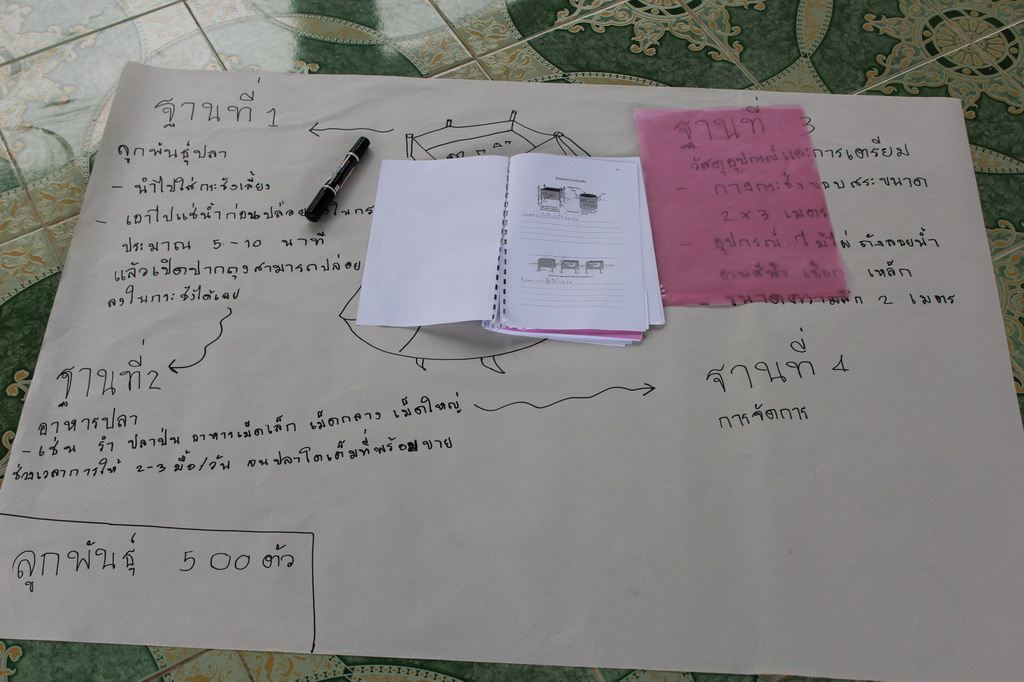 ฐานที่ 1
ลูกพันธุ์ปลา
- นำไปใส่กระชังเลี้ยง
- เอาไปแช่น้ำก่อนปล่อย ในกร
ประมาณ 5-10 นาที
แล้วเปิดปากถุงสามารถปล่อย
ลงในกระชังได้เลย
ฐานที่ 2
อาหารปลา
- เช่น รำ ปลาป่น อาหารเม็ดเล็ก เม็ดกลาง เม็ดใหญ่
ช่วงเวลาการให้ 2-3 มื้อ/วัน จนปลาโตเต็มที่พร้อมขาย
ลูกพันธุ์ 500 ตัว
ฐานที่ 3
วัสดุอุปกรณ์และการเตรียม
- กางกระชังขอบสระขนาด
2 x 3 เมตร
- อุปกรณ์ ไม้ไผ่ ถังลอยน้ำ
เชือก เหล็ก
- ขนาดความลึก 2 เมตร
ฐานที่ 4
การจัดการ